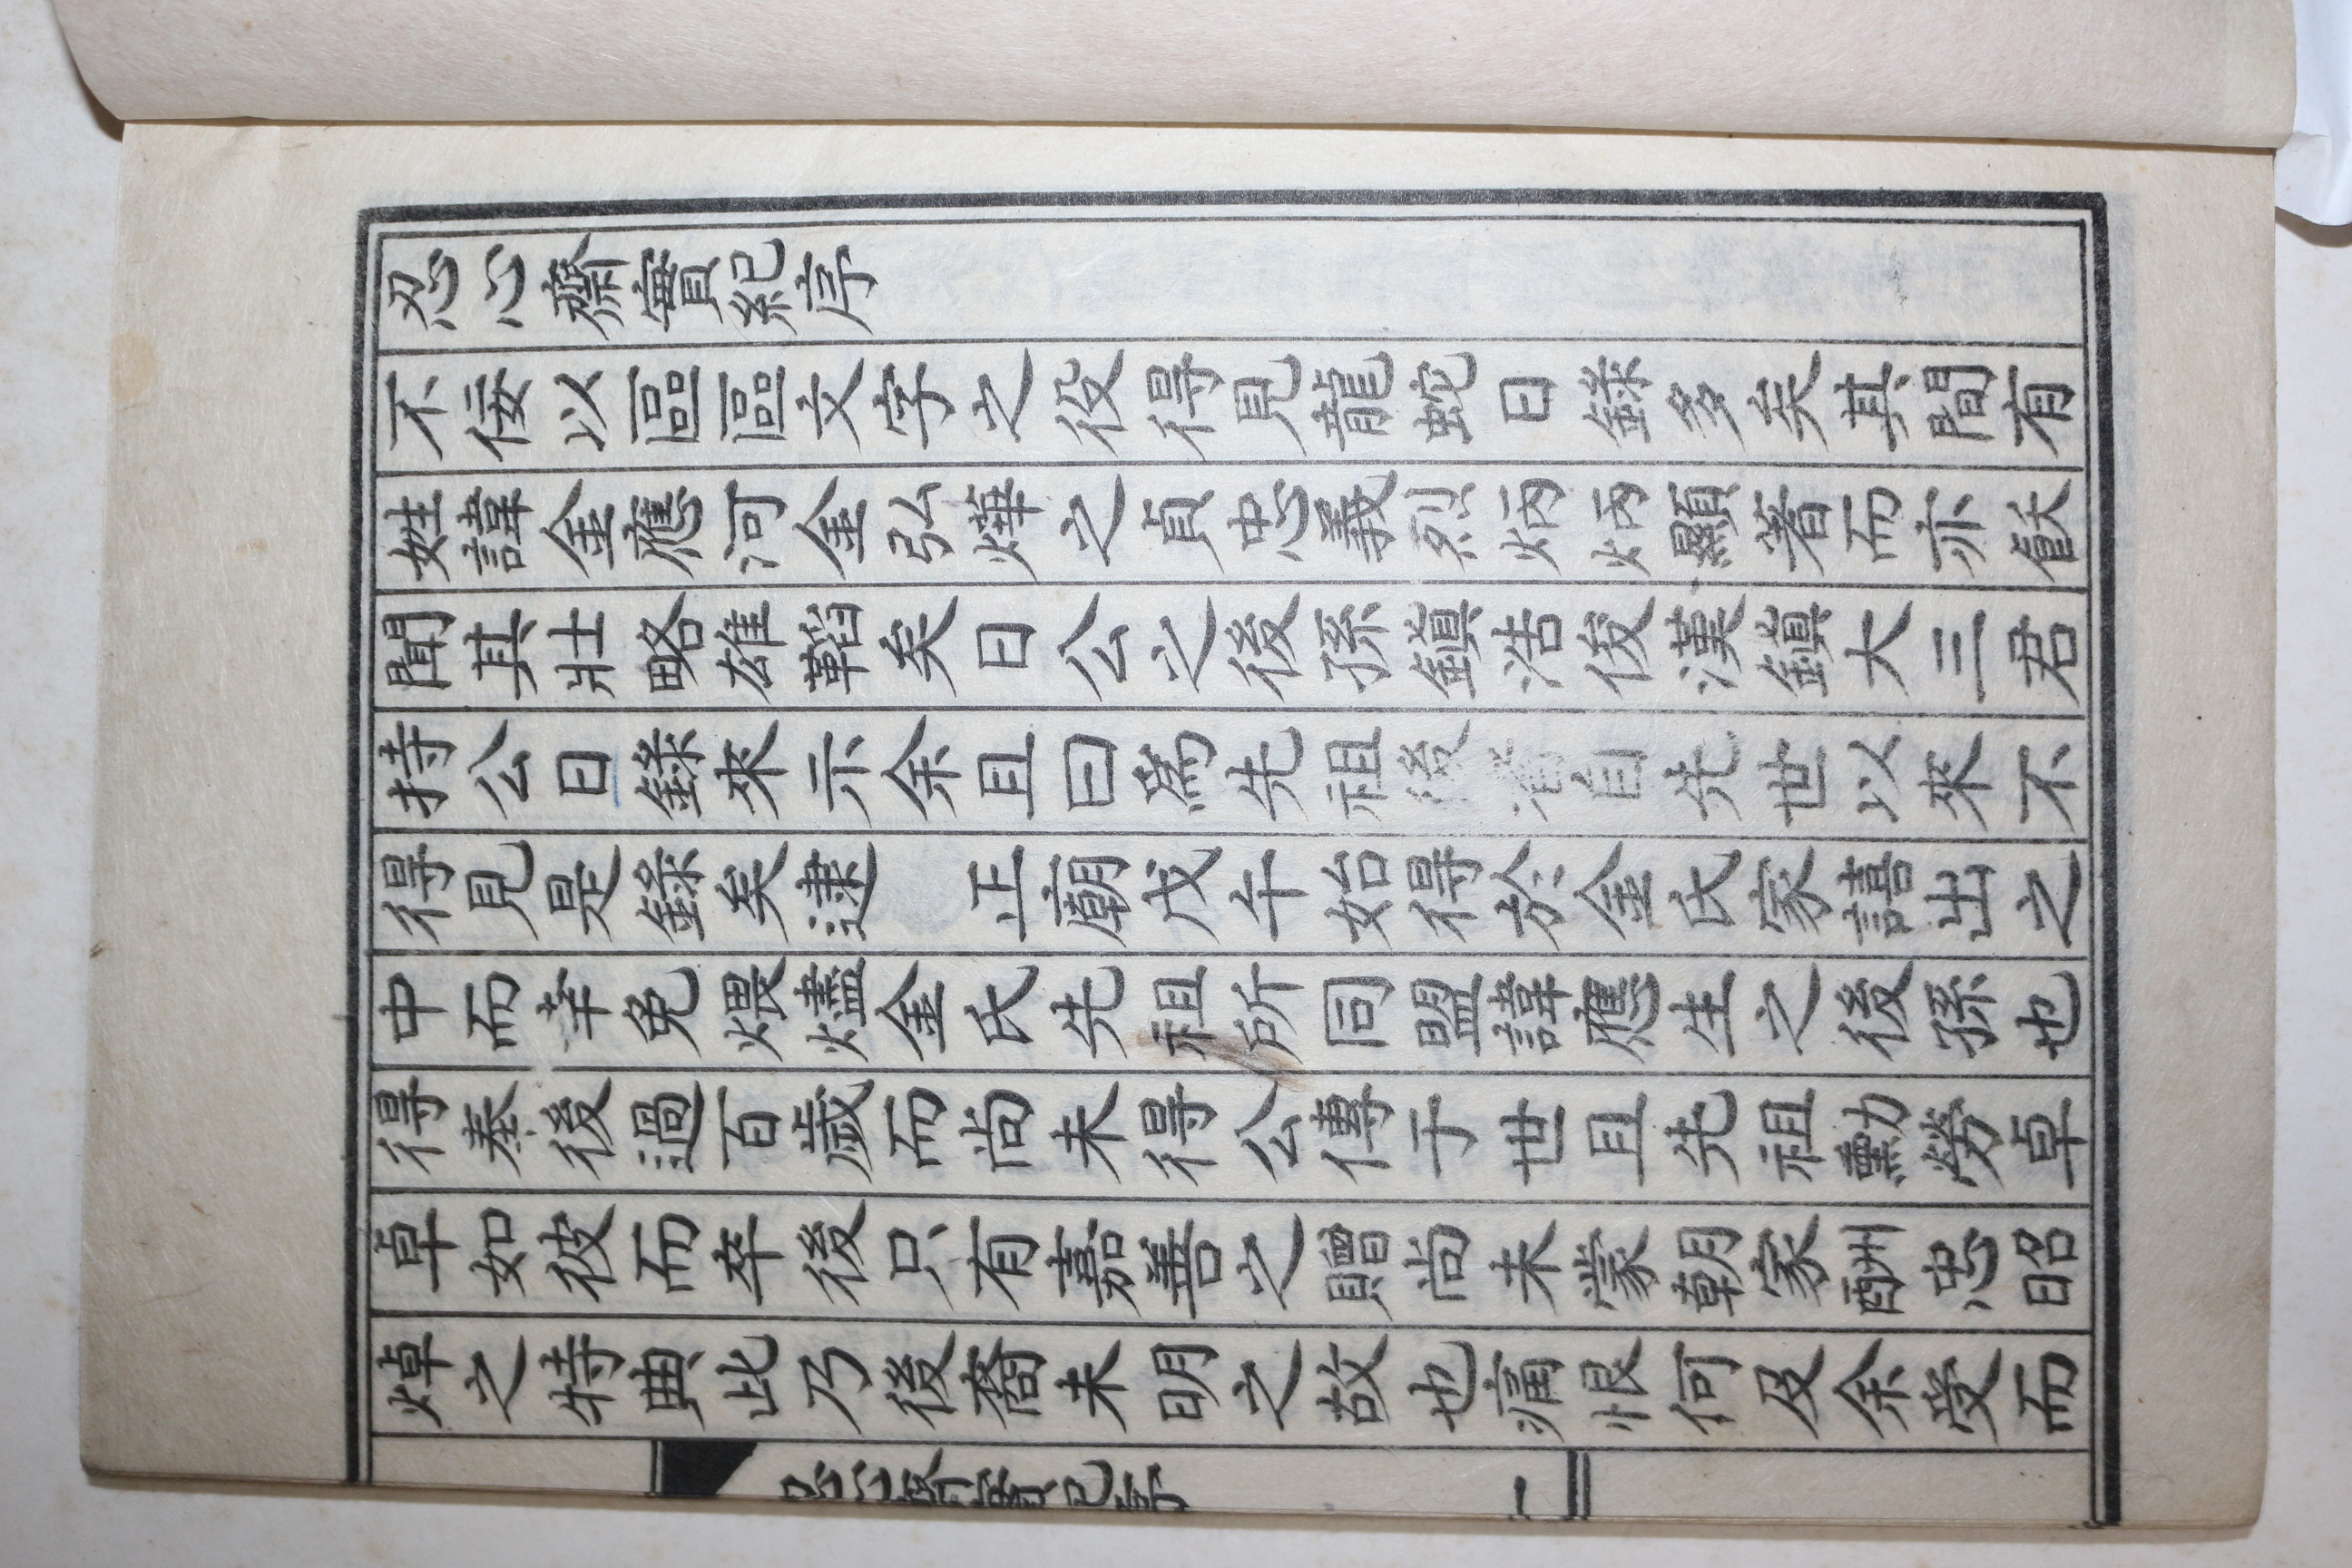 忍心齋實紀序
不佞以區區文字之役得見龍蛇日錄多矣其間有
姓諱金應河金弘燁之貞忠義烈炳炳顯著而亦飫
聞其壯略雄韜矣日公之後孫鎭浩俊漢鎭大三君
持公日錄來示余且曰爲先祖後裔自先世以來不
得見是錄矣逮　正廟戊午始得於金氏家譆出之
中而幸免煨燼金氏先祖所同盟諱應生之後孫也
得奏後過百歲而尙未得公傳于世且先祖勳勞卓
卓如彼而卒後只有嘉善之贈尙未蒙朝家酬忠昭
焯之特典此乃後裔未明之故也痛恨何及余受而
忍心齋實紀序　一